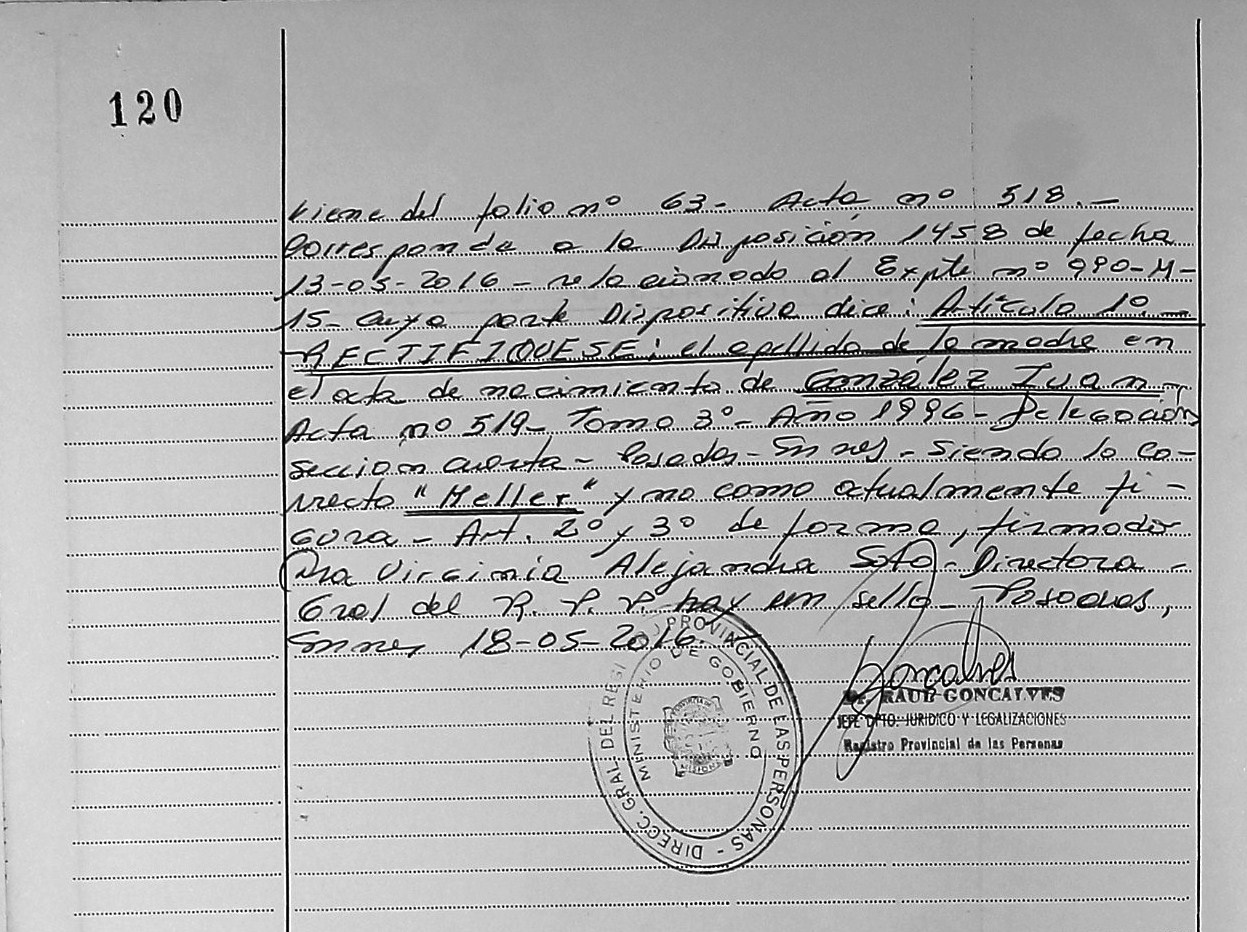 120
Viene del folio nº 63- Acta nº 518.-
Corresponde a la Disposición 1458 de fecha
13-05-2016 - relacionado al Expte nº 990-M-
15- cuya parte Dispositiva dice: Artículo 1º.-
RECTIFIQUESE: el apellido de la madre en
el acta de nacimiento de Gonzalez Iuan -
Acta nº 519- Tomo 3º- Año 1996- Delegación
sección cuarta - Posadas - Mnes - Siendo lo co-
rrecto "Meller" y no como actualmente fi-
gura - Art. 2º y 3º de forma, firmado:
Dra Virginia Alejandra Soto - Directora -
Gral del R. P. P. hay un sello - Posadas,
Mnes 18-05-2016.
DIRECC. GRAL DEL REGI PROVINCIAL DE LAS PERSONAS -
MINISTERIO DE GOBIERNO
PROVINCIA DE
MISIONES
Goncalves
Dr. RAUL GONCALVES
JEFE DPTO. JURIDICO Y LEGALIZACIONES
Registro Provincial de las Personas